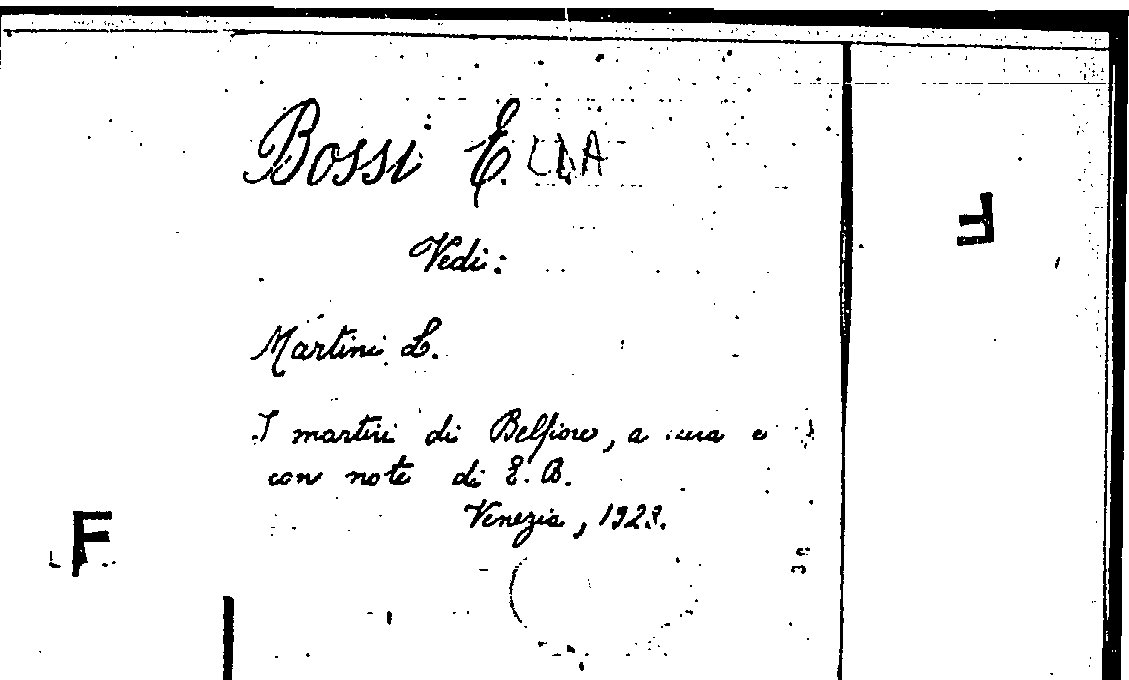 Bossi E.
Vedi:
Martini L.
I martiri di Belfiore, a cura e
con note di E. B.
Venezia, 1923.
F
F